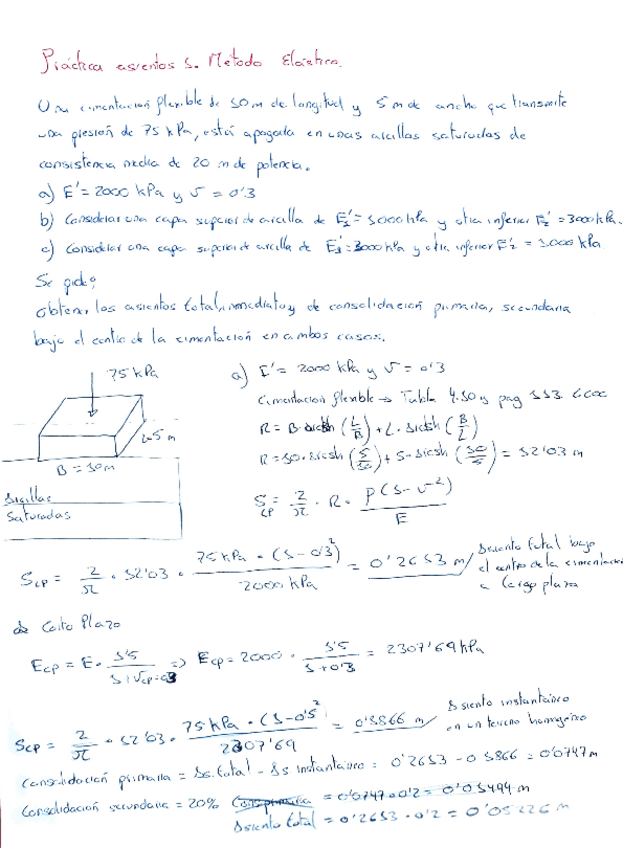 Práctica asientos 1. Método Elástico.
Una cimentación flexible de 10 m de longitud y 5 m de ancho que transmite
una presión de 75 kPa, está apoyada en unas arcillas saturadas de
consistencia media de 20 m de potencia.
a) E' = 2000 kPa y ν = 0'3
b) Considerar una capa superior de arcilla de E'₁ = 1000 kPa y otra inferior E'₂ = 3000 kPa.
c) Considerar una capa superior de arcilla de E'₁ = 3000 kPa y otra inferior E'₂ = 1000 kPa
Se pide:
obtener los asientos total, inmediato y de consolidación primaria, secundaria
bajo el centro de la cimentación en ambos casos.
75 kPa
L=5 m
B = 10 m
Arcillas
Saturadas
a) E' = 2000 kPa y ν = 0'3
Cimentación flexible → Tabla 4.10 y pag 113
R = B · arcsh (L/B) + L · arcsh (B/L)
R = 10 · arcsh (5/10) + 5 · arcsh (10/5) = 12'03 m
S_LP = 2/π · R · P(1-ν²)/E
S_LP = 2/π · 12'03 · 75 kPa · (1-0'3²)/2000 kPa = 0'2613 m/ Asiento total bajo el centro de la cimentación a largo plazo
Corto Plazo
E_CP = E · 1'5/1+ν_CP=0'3 => E_CP = 2000 · 1'5/1+0'3 = 2307'69 kPa
S_CP = 2/π · 12'03 · 75 kPa · (1-0'5²)/2307'69 = 0'1866 m/ Asiento instantáneo en un terreno homogéneo
Consolidación primaria = As. total - As instantáneo = 0'2613 - 0'1866 = 0'0747 m
Consolidación secundaria = 20% = 0'0747 · 0'2 = 0'01494 m
Asiento total = 0'2613 · 0'2 = 0'05226 m